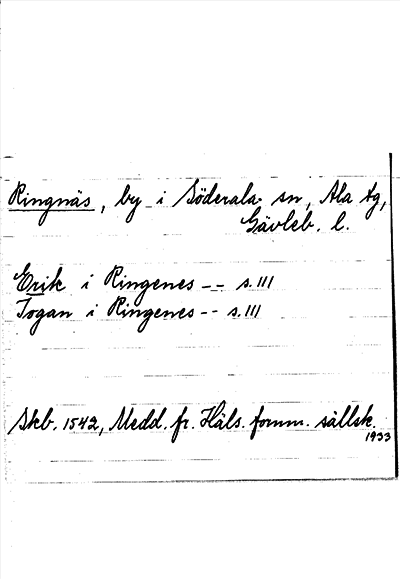 Ringnäs, by i Söderala sn, Ala tg,
Gävleb. l.
Erik i Ringenes -- s. 111
Jogan i Ringenes -- s. 111
Skb. 1542, Medd. fr. Häls. fornm. sällsk.
1933